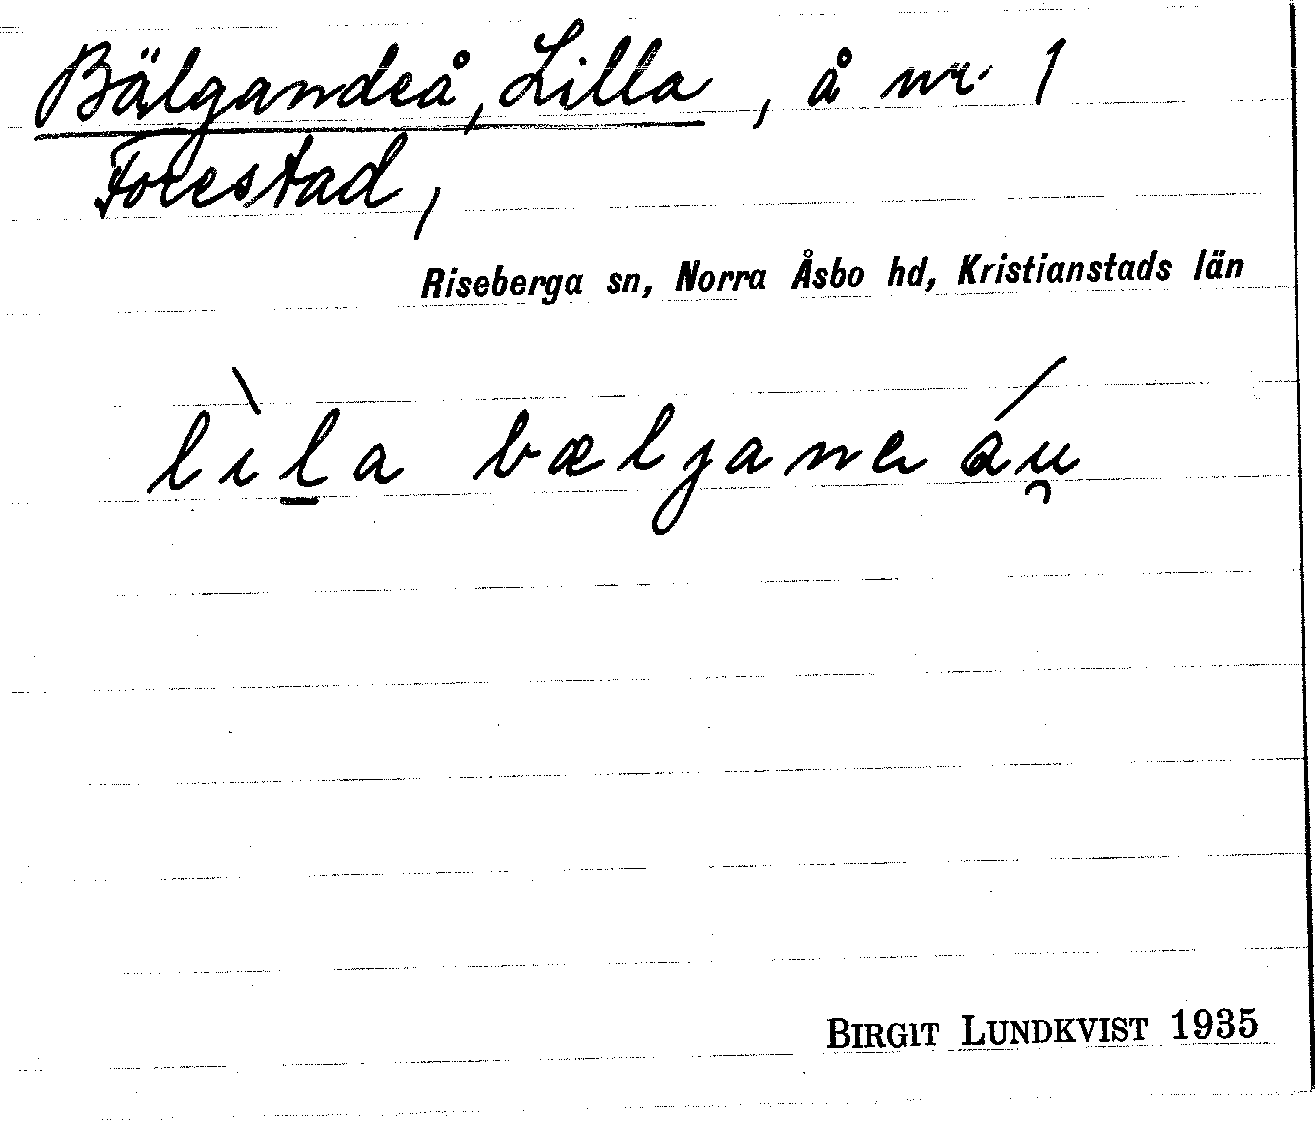 Bälgandeå, Lilla, å nr 1
Forestad,
Riseberga sn, Norra Åsbo hd, Kristianstads län
lìla bælganeáu̯
BIRGIT LUNDKVIST 1935